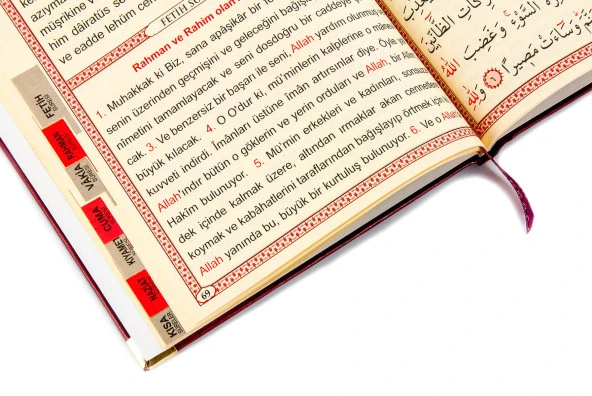 azyma
müşrikîne v
him dâiratüs se
ve eadde lehüm cen
FETİH S
Rahman ve Rahim olan
1. Muhakkak ki Biz, sana apâşikâr bir
senin üzerinden geçmişini ve geleceğini bağış
nîmetini tamamlayacak ve seni dosdoğru bir caddeye
cak. 3. Ve benzersiz bir başarı ile seni, Allah yardım olunmuş
büyük kılacak. 4. O O'dur ki, mü'minlerin kalplerine o mâne
kuvveti indirdi. Îmânları üstüne îmân artırsınlar diye. Öyle
Allah'ındır bütün o göklerin ve yerin orduları ve Allah, bir Al
Hakîm bulunuyor. 5. Mü'min erkekleri ve kadınları, sonsuz
dek içinde kalmak üzere, altından ırmaklar akan cennetler
koymak ve kabâhatlerini taraflarından bağışlayıp örtmek için
Allah yanında bu, büyük bir kurtuluş bulunuyor. 6. Ve o
69
FETİH
SÛRESİ
RAHMAN
VÂKIA
CUMA
KIYAMET
NAZİAT
KISA
SÛRELER
السَّوْءِ وَغَضِبَ اللَّهُ
وَسَاءَتْ مَصِيرًا ٦ وَلِلَّهِ